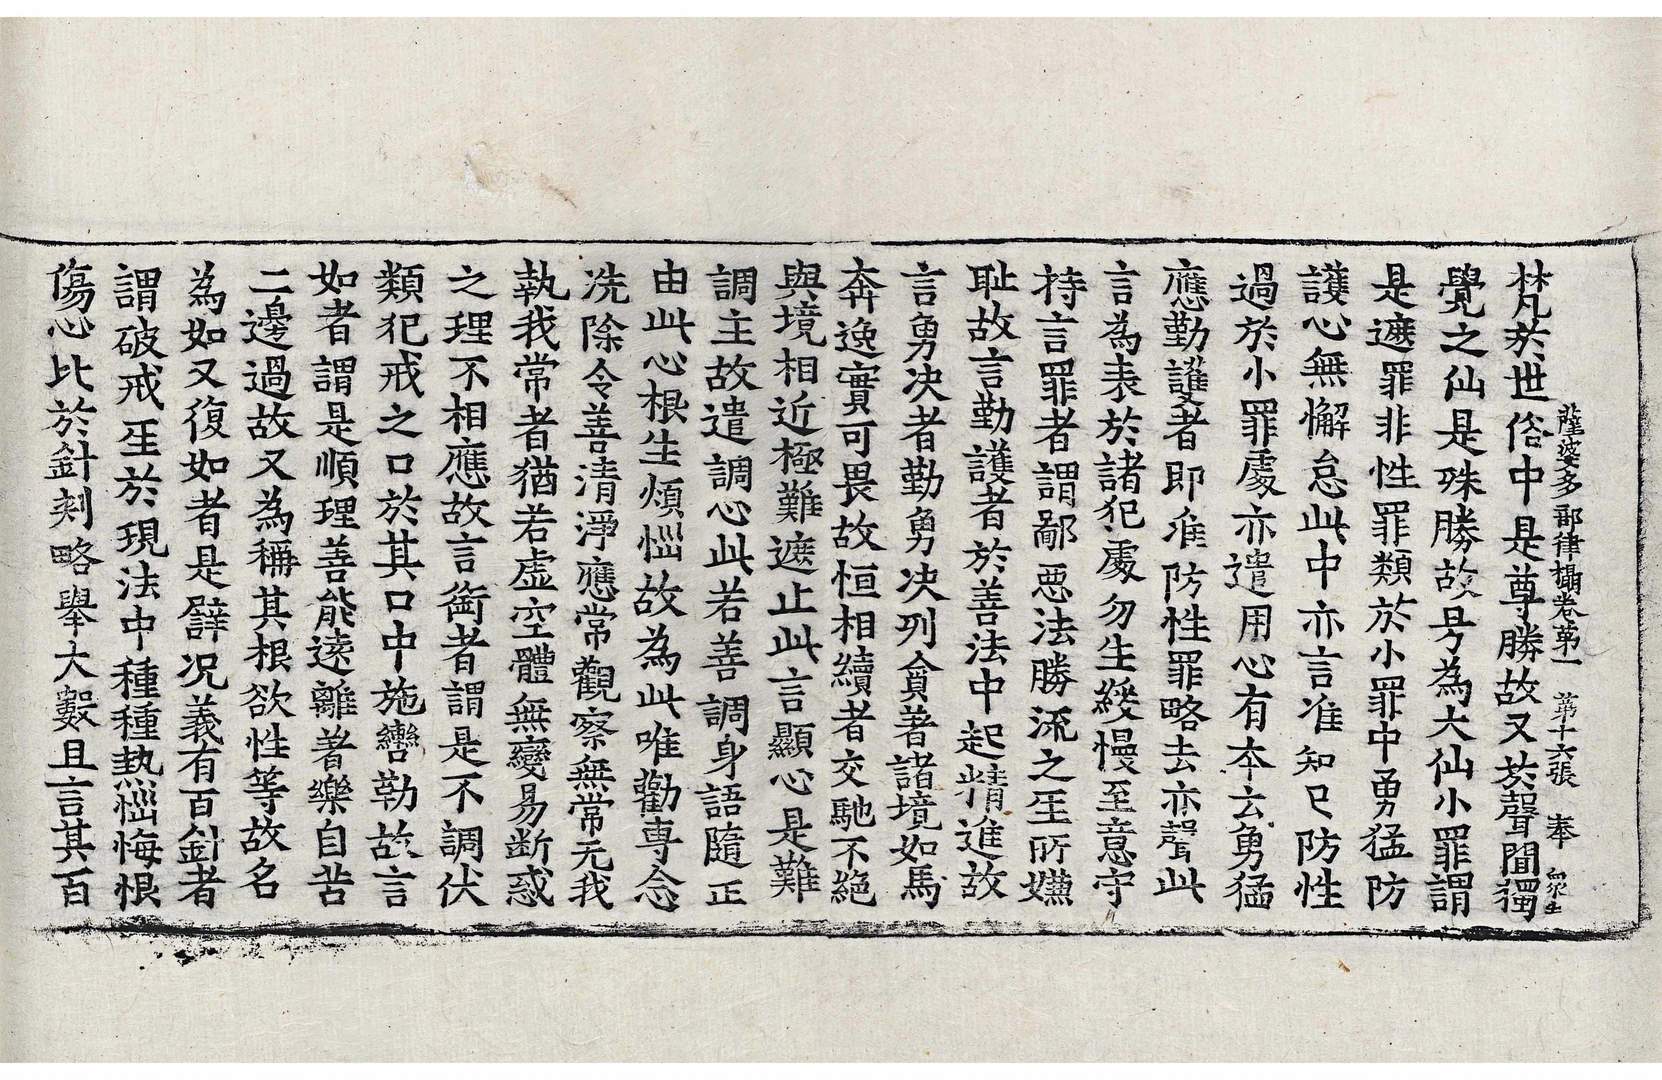 薩婆多部律攝卷第一　第十六張　奉
梵於世俗中是尊勝故又於聲聞獨
覺之仙是殊勝故号為大仙小罪謂
是遮罪非性罪類於小罪中勇猛防
護心無懈怠此中亦言准知已防性
過於小罪處亦遣用心有本云勇猛
應勤護者即准防性罪略去亦聲此
言為表於諸犯處勿生緩慢至意守
持言罪者謂鄙惡法勝流之𤯔所嫌
耻故言勤護者於善法中起精進故
言勇决者勤勇决列貪著諸境如馬
奔逸實可畏故恒相續者交馳不絕
與境相近極難遮止此言顯心是難
調主故遣調心此若善調身語隨正
由此心根生煩惱故為此唯勸專念
洗除令善清淨應常觀察無常无我
執我常者猶若虛空體無變易斷惑
之理不相應故言銜者謂是不調伏
類犯戒之口於其口中施轡勒故言
如者謂是順理善能遠離著樂自苦
二邊過故又為稱其根欲性等故名
為如又復如者是譬况義有百針者
謂破戒𤯔於現法中種種熱惱悔恨
傷心比於針刺略舉大數且言其百